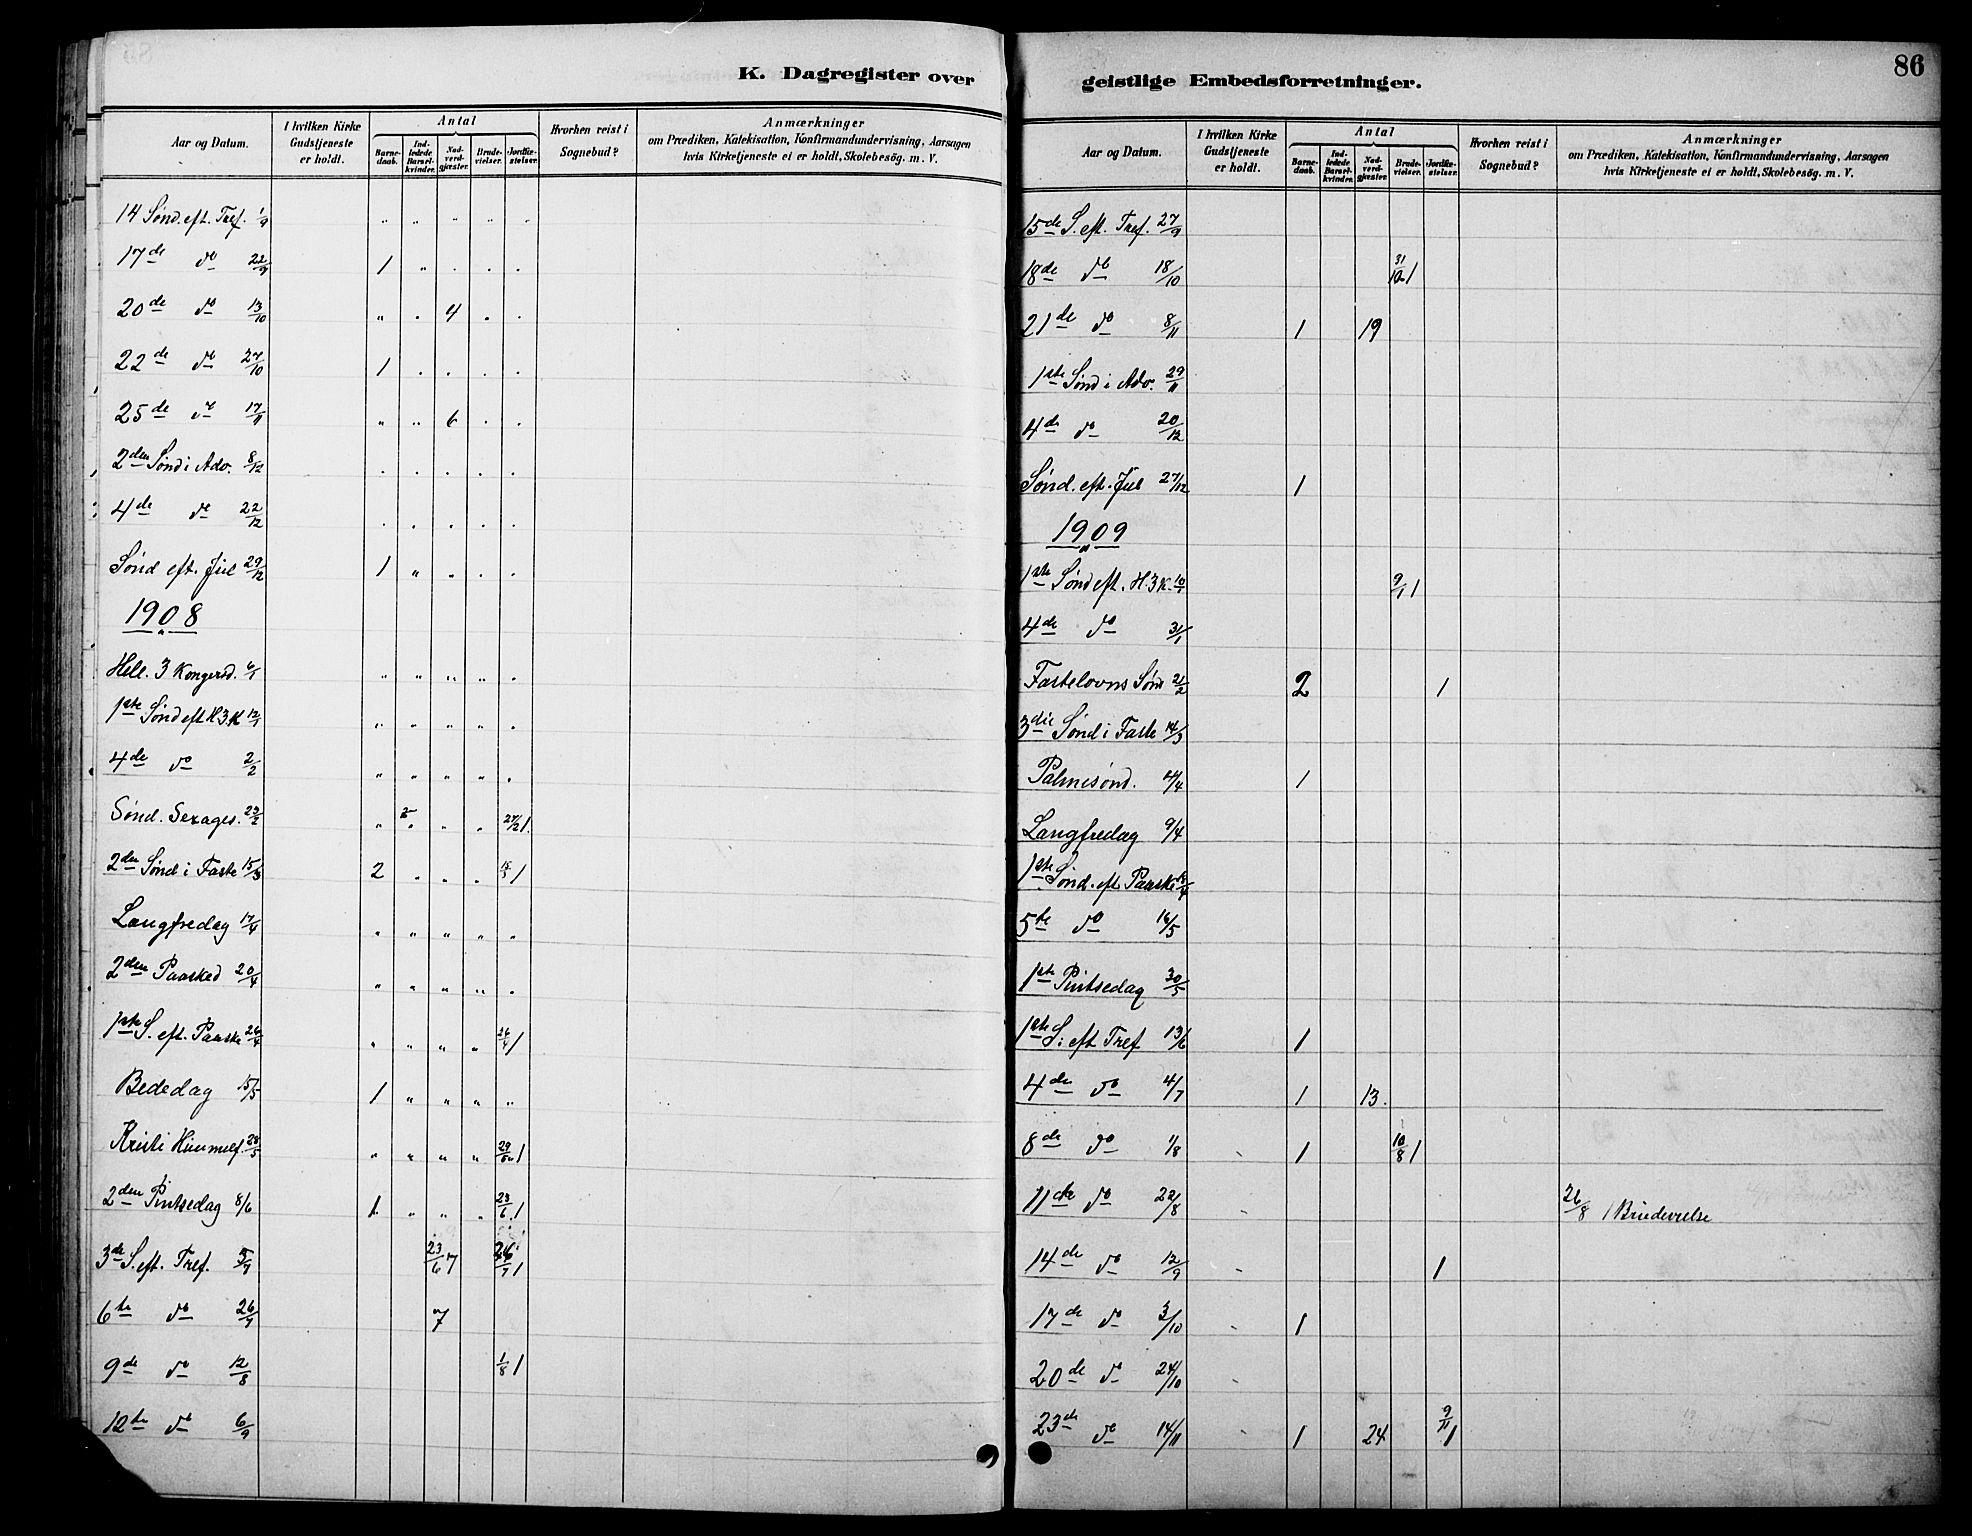 K. Dagregister over
Aar og Datum.
I hvilken Kirke Gudstjeneste er holdt.
Antal
Barnedaab.
Indledede Barselkvinder.
Nadverdgjæster.
Brudevielser.
Jordfæstelser.
Hvorhen reist i Sognebud?
Anmærkninger
om Prædiken, Katekisation, Konfirmandundervisning, Aarsagen
hvis Kirketjeneste ei er holdt, Skolebesög. m. V.
14 Sønd. eft. Tref. 1/9 " " " " "
17de do 22/9 1 " " " "
20de do 13/10 " " 4 " "
22de do 27/10 1 " " " "
25de do 17/11 " " 6 " "
2den Sønd i Adv. 8/12 " " " " "
4de do 22/12 " " " " "
Sønd eft. Jul 29/12 1 " " " "
1908
Hell. 3 Kongersd. 6/1 " " " " "
1ste Sønd eft H 3 K 12/1 " " " " "
4de do 2/2 " " " " "
Sønd. Sexages. 23/2 " " " " 27/2 1.
2den Sønd i Faste 15/3 2 " " " 15/3 1
Langfredag 17/4 " " " " "
2den Paasked 20/4 " " " " "
1ste S. eft. Paaske 26/4 " " " " 26/4 1
Bededag 15/5 1 " " " "
Kristi Himmelf. 28/5 " " " " 29/5 1
2den Pintsedag 8/6 1 " " " 23/6 1
3de S. eft. Tref. 5/7 23/6 7 26/7 1
6te do 26/7 7
9de do 12/8 1/8 1
12te do 6/9
geistlige Embedsforretninger.
86
Aar og Datum.
I hvilken Kirke Gudstjeneste er holdt.
Antal
Barnedaab.
Indledede Barselkvinder.
Nadverdgjæster.
Brudevielser.
Jordfæstelser.
Hvorhen reist i Sognebud?
Anmærkninger
om Prædiken, Katekisation, Konfirmandundervisning, Aarsagen
hvis Kirketjeneste ei er holdt, Skolebesög. m. V.
15de S. eft. Tref. 27/9
18de do 18/10 31/10 1
21de do 8/11 1 19
1ste Sønd i Adv. 29/11
4de do 20/12
Sønd. eft. Jul 27/12 1
1909
1ste Sønd eft. H. 3 K. 10/1 9/1 1
4de do 31/1
Fastelovns Sønd 21/2 2 1
3die Sønd i Faste 14/3
Palmesønd. 4/4 1
Langfredag 9/4
1ste Sønd. eft Paaske 18/4
5te do 16/5
1ste Pintsedag 30/5
1ste S. eft Tref 13/6 1
4de do 4/7 1 13.
8de do 1/8 1 10/8 1
11te do 22/8 26/8 1 Brudevielse
14de do 12/9 1
17de do 3/10 1
20de do 24/10
23de do 14/11 1 24 9/11 1